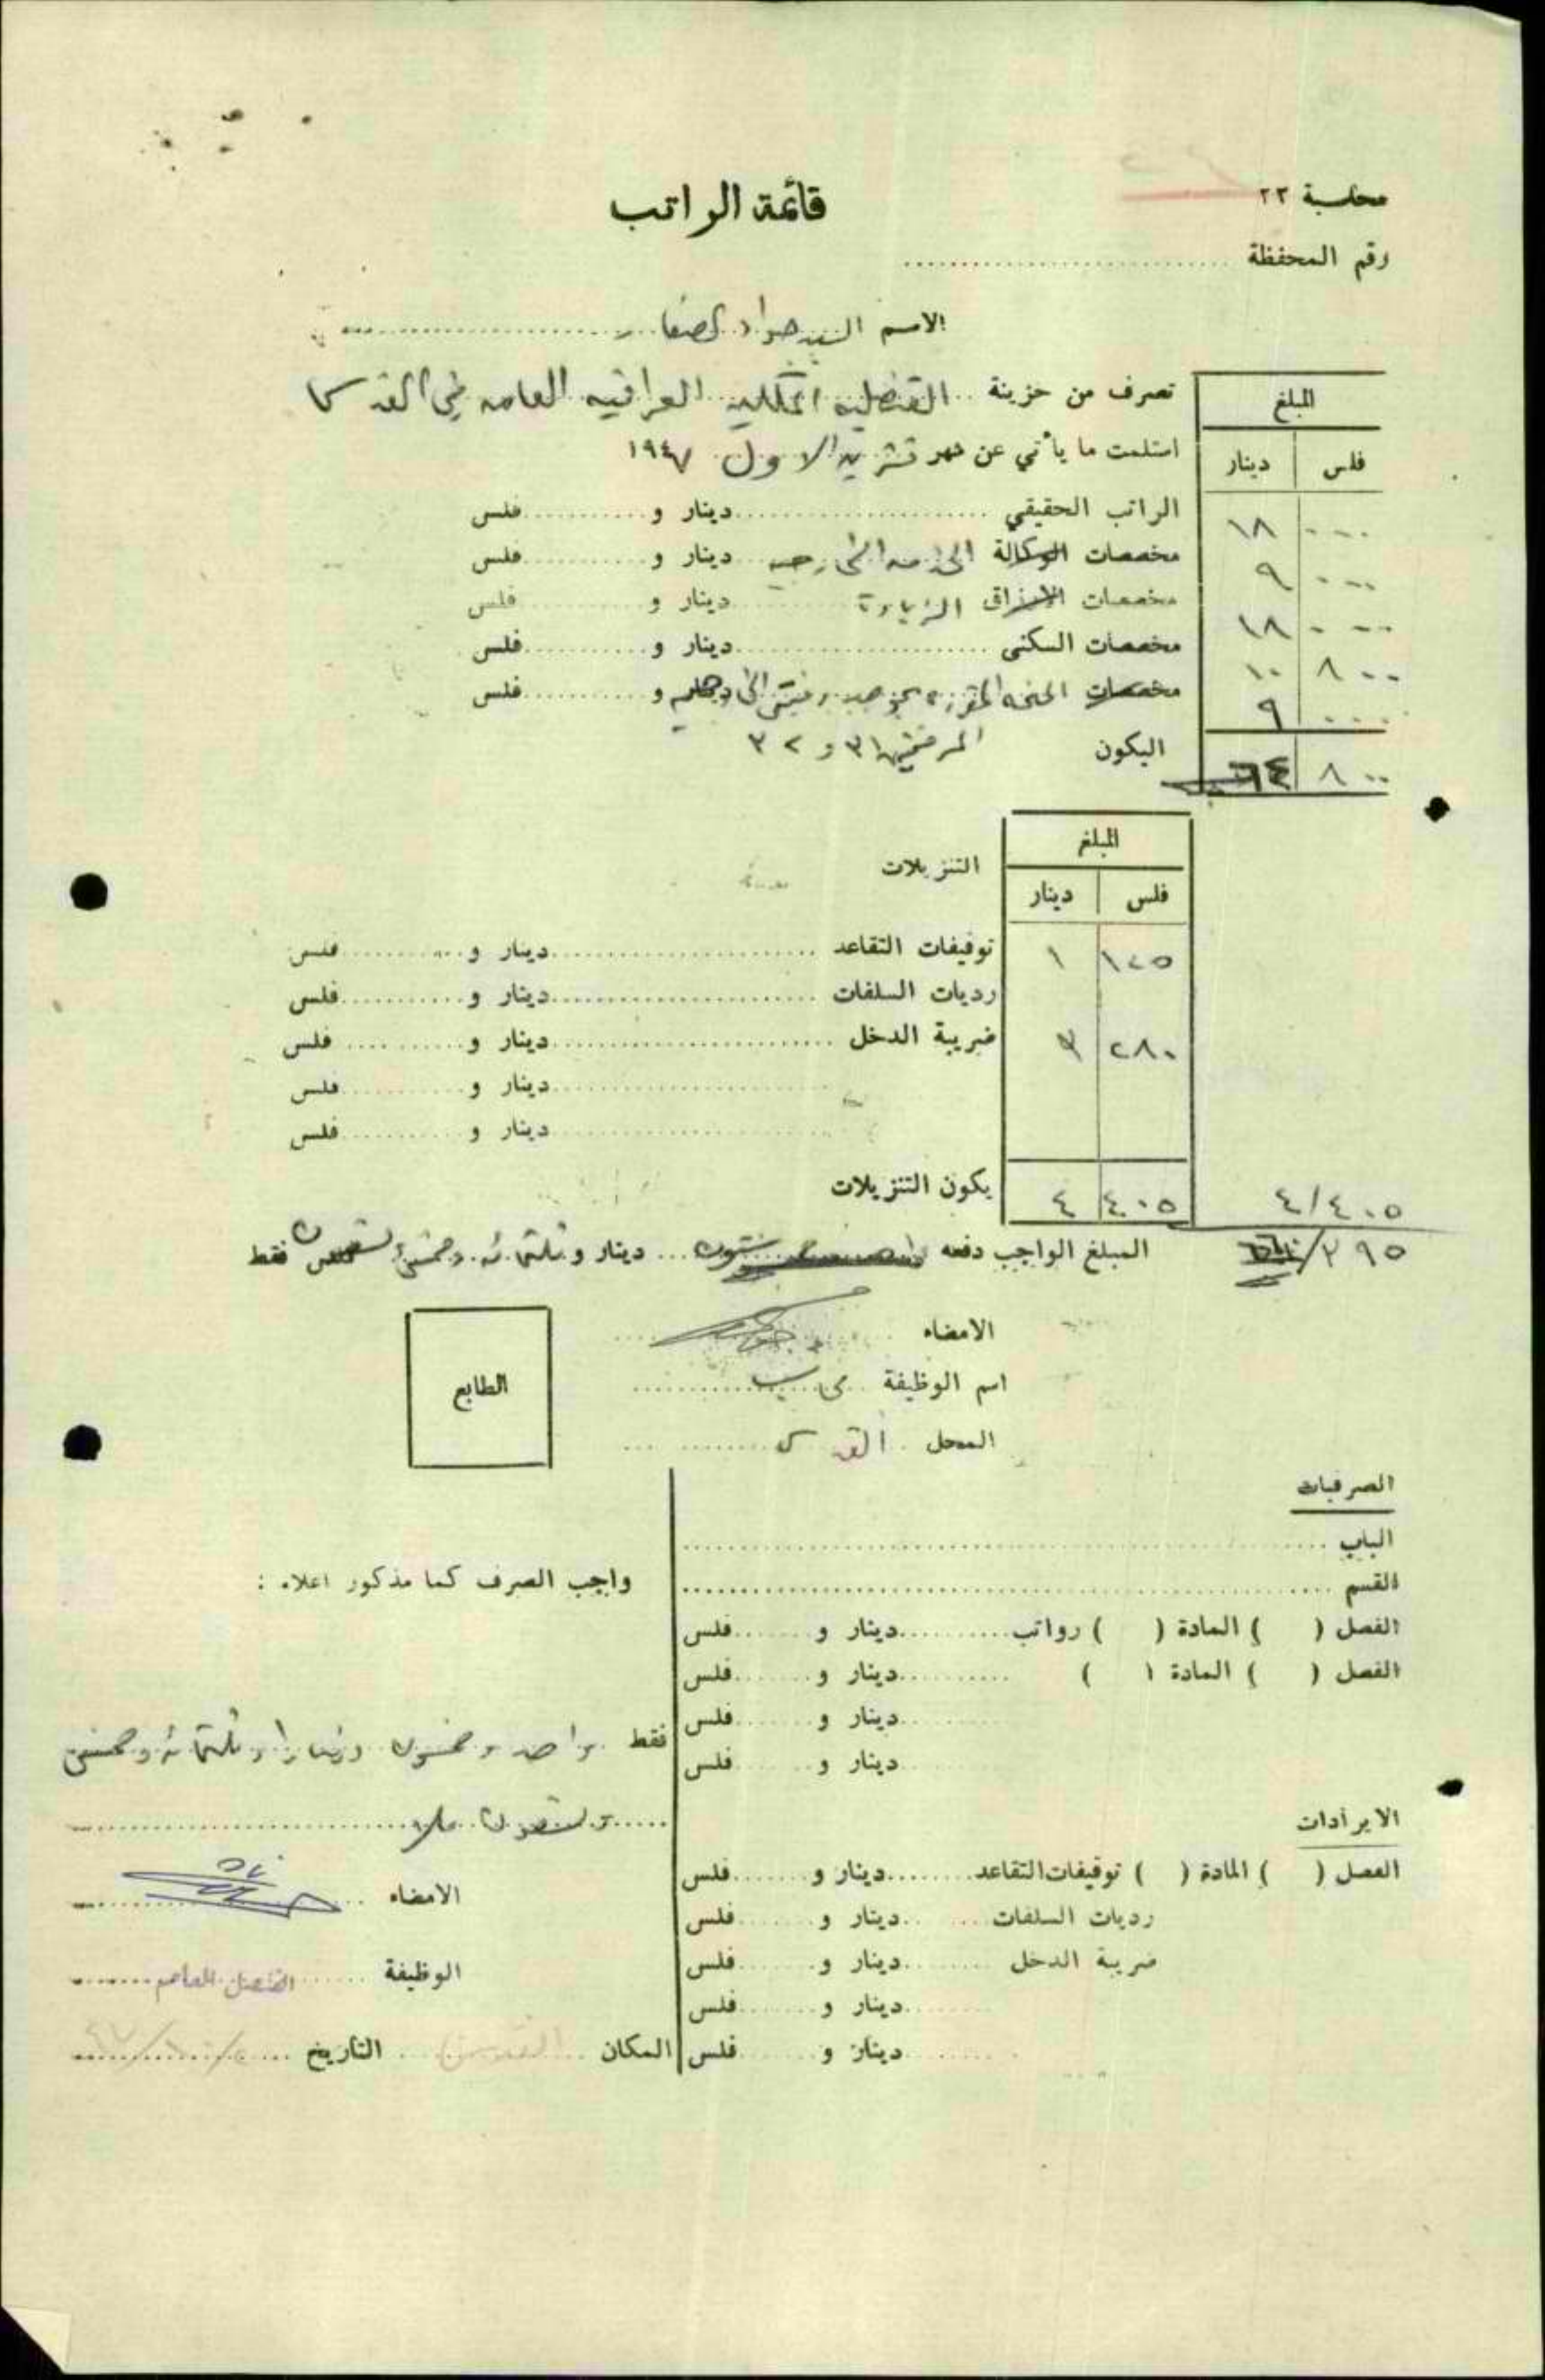 محاسبة ٢٢
قائمة الراتب
رقم المحفظة
الاسم السيد جواد الصفار
تصرف من خزينة القنصلية الملكية العراقية العامة في القدس
المبلغ
استلمت ما يأتي عن شهر تشرين الاول ١٩٤٧
فلس دينار
الراتب الحقيقي دينار و فلس
١٨ ...
مخصصات الوكالة الخدمة الخارجية دينار و فلس
٩ ...
مخصصات الارزاق الزيادة دينار و فلس
١٨ ...
مخصصات السكنى دينار و فلس
١٠ ٨٠٠
مخصصات المنحة المقررة بموجب و فلس
٩ ...
اليكون ٣١ و ٣٢
٦٤ ٨٠٠
المبلغ
التنزيلات
فلس دينار
توقيفات التقاعد دينار و فلس
١ ١٢٥
رديات السلفات دينار و فلس
ضريبة الدخل دينار و فلس
٣ ٢٨٠
دينار و فلس
دينار و فلس
يكون التنزيلات
٤ ٤٠٥
٤/٤٠٥
المبلغ الواجب دفعه ستون دينار و ثلثمائة وخمسة وتسعون فلس فقط
٣٩٥
الامضاء
الطابع
اسم الوظيفة محاسب
المحل القدس
الصرفيات
الباب
القسم
الفصل ( ) المادة ( ) رواتب دينار و فلس
الفصل ( ) المادة ( ) دينار و فلس
دينار و فلس
دينار و فلس
الايرادات
الفصل ( ) المادة ( ) توقيفات التقاعد دينار و فلس
رديات السلفات دينار و فلس
ضريبة الدخل دينار و فلس
دينار و فلس
دينار و فلس
واجب الصرف كما مذكور اعلاه :
فقط واحد وخمسون دينارا وثلثمائة وخمسة
وتسعون فلس
الامضاء
الوظيفة القنصل العام
المكان القدس التاريخ